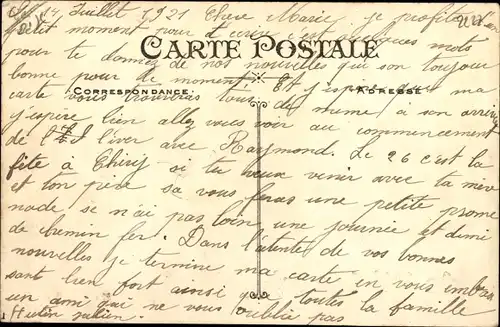 14 Juillet 1921 Chère Marie je profite d'un
petit moment pour t'écrire c'est quelques mots
pour te donner de nos nouvelles qui son toujour
CARTE POSTALE
bonne pour de moment. Et j'espère
CORRESPONDANCE
ADRESSE
que ma
carte vous trouveras tous de meme a son arrivée
j'espère bien allez vous voir au commencement
de l'iver avec Raymond. Le 26 c'est la
fête à Chery si tu veux venir avec ta mère
et ton père sa vous feras une petite prome
nade se n'ai pas loin une journée et demi
de chemin fer. Dans l'atente de vos bonnes
nouvelles je termine ma carte en vous embra
sant bien fort ainsi que toutes la famille
un ami qui ne vous oublie pas
Hutin Julien